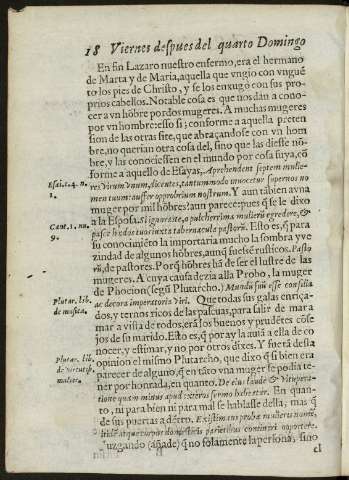 18 Viernes despues del quarto Domingo
En fin Lazaro nuestro enfermo, era el hermano
de Marta y de Maria, aquella que vngio con vngué
to los pies de Christo, y se los enxugò con sus pro
prios cabellos. Notable cosa es que nos dan a cono-
cer a vn hôbre por dos mugeres. A muchas mugeres
por vn hombre: esso si; conforme a aquella preten
sion de las otras siete, que abraçandose con vn hom
bre, no querian otra cosa del, sino que las diesse nô-
bre, y las conociessen en el mundo por cosa suya, cô
forme a aquello de Esayas, Aprehendent septem mulie-
res virum vnum, dicentes, tantummodo inuocetur supernos no
men tuum: aufer opprobrium nostrum. Y aun tābien avna
muger por mil hôbres: aun parece pues q̃ se le dixo
a la Esposa. Si ignoras te, o pulcherrima mulierũ egredere, &
pasce hædos tuos iuxta tabernacula pastorũ. Esto es, q̃ para
su conocimiéto la importaria mucho la sombra y ve
zindad de algunos hôbres, aunq̃ fuessé rusticos. Pasto
rũ, de pastores. Porq̃ hôbres hā de ser el lustre de las
mugeres. A cuya causa dezia alla Probo, la muger
de Phocion (segũ Plutarcho.) Mundũ suũ esse consilia
ac decora imperatoris viri. Que todas sus galas enriça-
dos, y ternos ricos de las pascuas, para salir de mar a
mar a vista de todos, erā los buenos y prudétes côse
jos de su marido. Esto es, q̃ por ay la auiā a ella de co
nocer, y estimar, y no por otros dixes. Y fue tā dessa
opinion el mismo Plutarcho, que dixo q̃ si bien era
parecer de alguno, q̃ en tāto vna muger se podia te-
ner por honrada, en quanto. De eius laude & vitupera-
tione quàm minus apud exteros sermo habeatur. En quan-
to, ni para bien ni para mal se hablasse della, mas q̃
de sus puertas a détro. Existimans probæ mulieris nomẽ,
domesticis parietibus contineri oportere.
uzgando (añade) q̃ no solamente la persona, sino
el
Esai. c. 4. n.
1.
Cant. 1. nu.
9.
Plutar. lib.
de musica.
Plutar. lib.
de virtutib.
mulier.